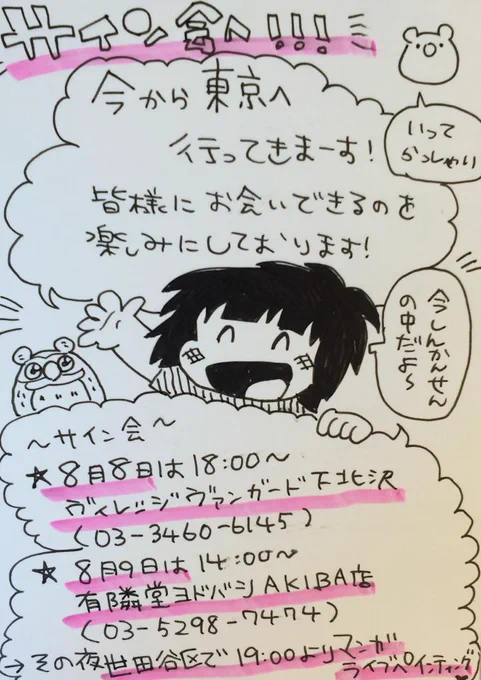 サイン会へ!!!
いって
らっしゃい
今から東京へ
行ってきまーす!
皆様にお会いできるのを
楽しみにしております!
今しんかんせん
の中だよ〜
〜サイン会〜
★8月8日は18:00〜
ヴィレッジヴァンガード下北沢
(03-3460-6145)
★8月9日は14:00〜
有隣堂ヨドバシAKIBA店
(03-5298-7474)
→その夜世田谷区で19:00よりマンガ
ライブペインティング♥